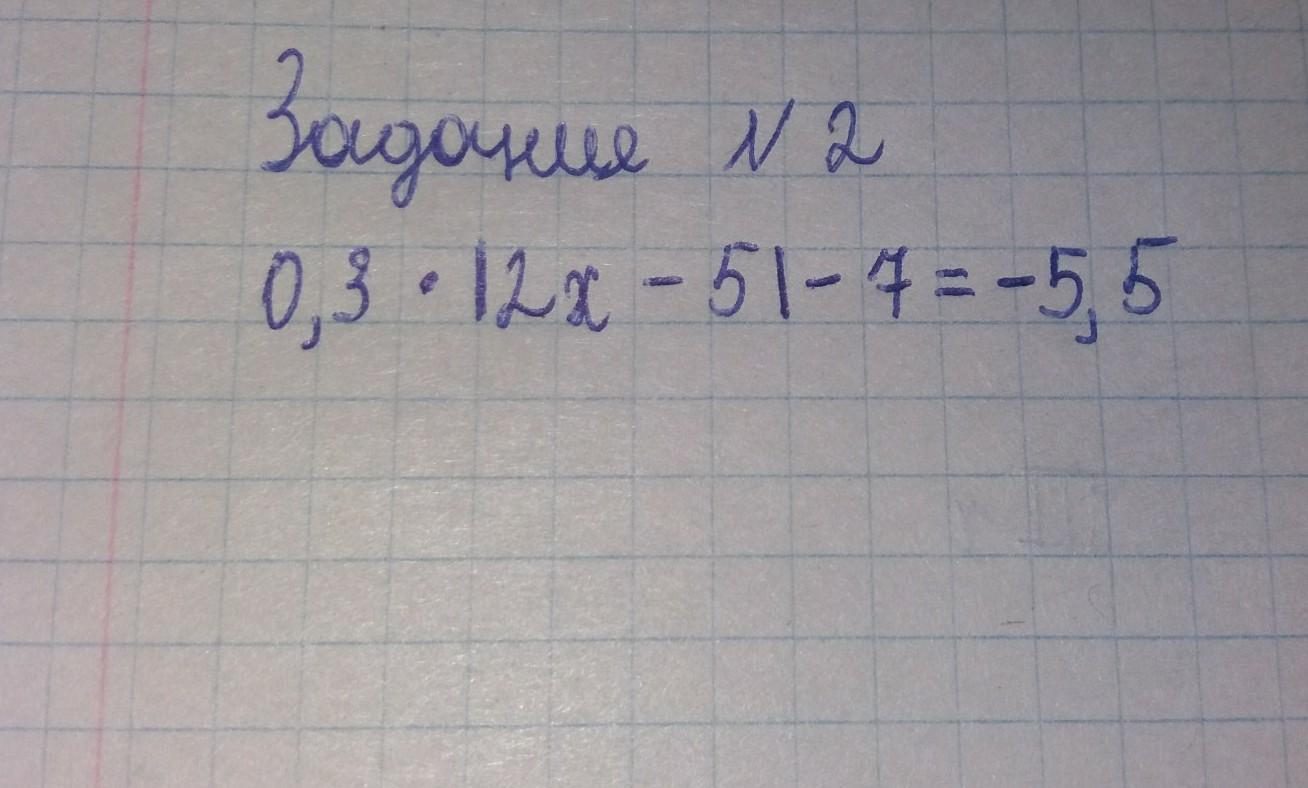 Задание N 2
0,3 · |2x - 5| - 7 = -5,5